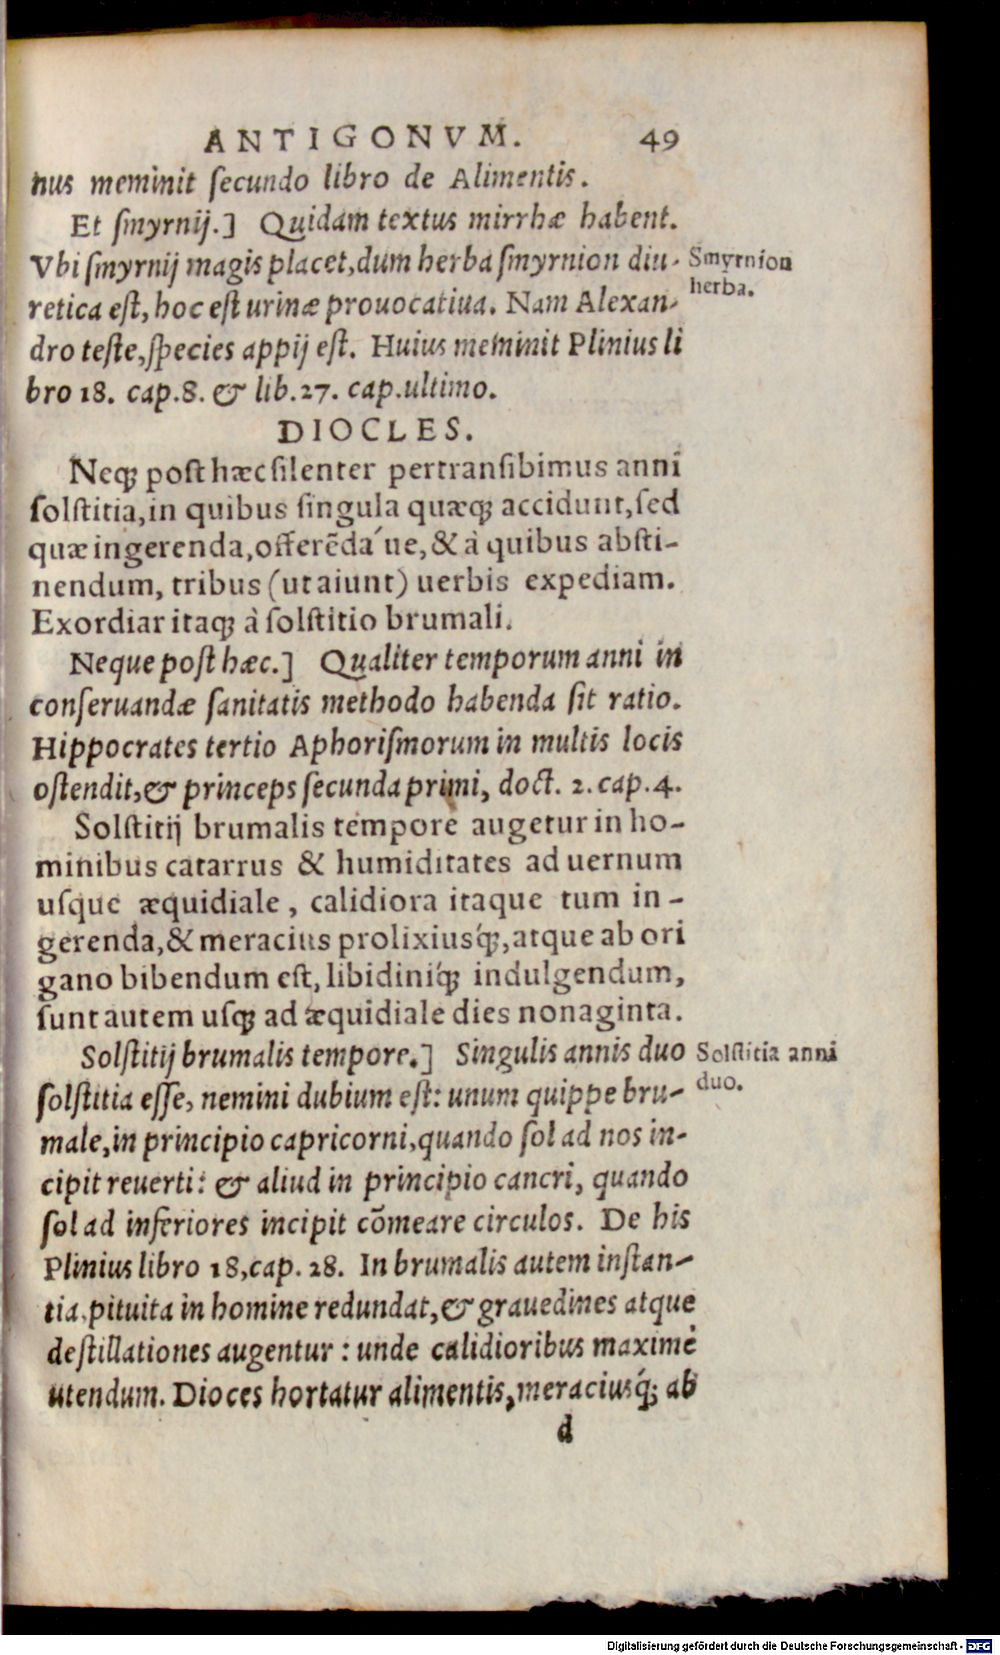 ANTIGONVM. 49
nus meminit ſecundo libro de Alimentis.
Et ſmyrnij.] Quidam textus mirrhæ habent.
Vbi ſmyrnij magis placet, dum herba ſmyrnion diu-
retica eſt, hoc eſt urinæ prouocatiua. Nam Alexan-
dro teſte, ſpecies appij eſt. Huius meminit Plinius li
bro 18. cap.8. & lib.27. cap.ultimo.
Smyrnion
herba.
DIOCLES.
Neqꝫ poſt hæc ſilenter pertranſibimus anni
ſolſtitia, in quibus ſingula quæqꝫ accidunt, ſed
quæ ingerenda, offerẽda´ue, & à quibus abſti-
nendum, tribus (ut aiunt) uerbis expediam.
Exordiar itaqꝫ à ſolſtitio brumali.
Neque poſt hæc.] Qualiter temporum anni in
conſeruandæ ſanitatis methodo habenda ſit ratio.
Hippocrates tertio Aphoriſmorum in multis locis
oſtendit, & princeps ſecunda primi, doct. 2. cap.4.
Solſtitij brumalis tempore augetur in ho-
minibus catarrus & humiditates ad uernum
uſque æquidiale, calidiora itaque tum in-
gerenda, & meracius prolixiusq́ꝫ, atque ab ori
gano bibendum eſt, libidiniq́ꝫ indulgendum,
ſunt autem uſqꝫ ad æquidiale dies nonaginta.
Solſtitij brumalis tempore.] Singulis annis duo
ſolſtitia eſſe, nemini dubium eſt: unum quippe bru-
male, in principio capricorni, quando ſol ad nos in-
cipit reuerti: & aliud in principio cancri, quando
ſol ad inferiores incipit cõmeare circulos. De his
Plinius libro 18, cap. 28. In brumalis autem inſtan-
tia, pituita in homine redundat, & grauedines atque
deſtillationes augentur: unde calidioribus maximè
utendum. Dioces hortatur alimentis, meraciusq́ꝫ ab
Solſtitia anni
duo.
d
Digitalisierung gefördert durch die Deutsche Forschungsgemeinschaft - DFG